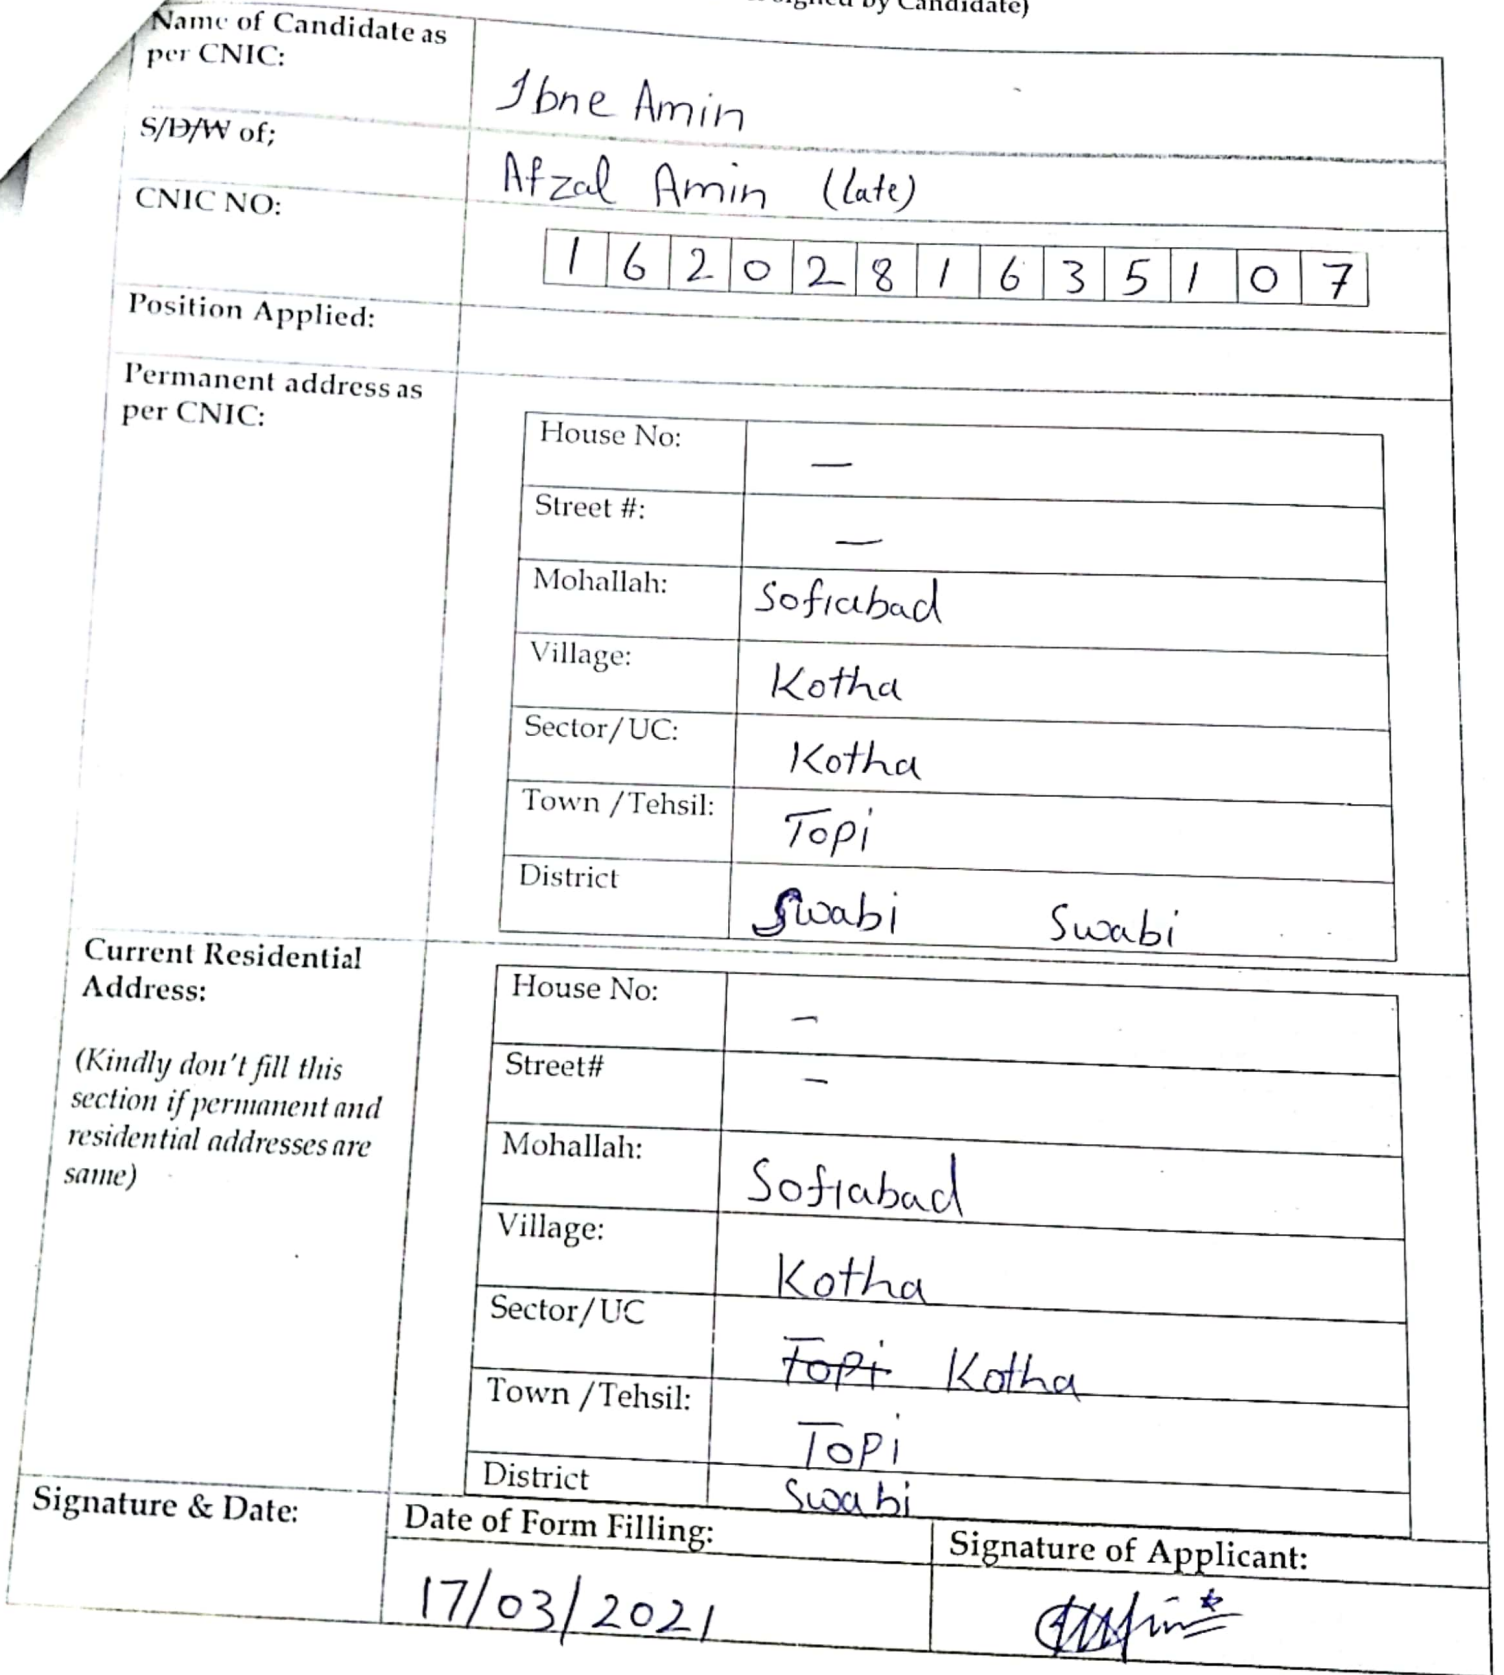 by Candidate)
Name of Candidate as
per CNIC:
Ibne Amin
S/D/W of;
Afzal Amin (Late)
CNIC NO:
1 6 2 0 2 8 1 6 3 5 1 0 7
Position Applied:
Permanent address as
per CNIC:
House No: —
Street #: —
Mohallah: Sofiabad
Village: Kotha
Sector/UC: Kotha
Town /Tehsil: Topi
District Swabi Swabi
Current Residential
Address:
(Kindly don't fill this
section if permanent and
residential addresses are
same)
House No: –
Street# –
Mohallah: Sofiabad
Village: Kotha
Sector/UC Topi Kotha
Town /Tehsil: Topi
District Swabi
Signature & Date:
Date of Form Filling:
17/03/2021
Signature of Applicant: